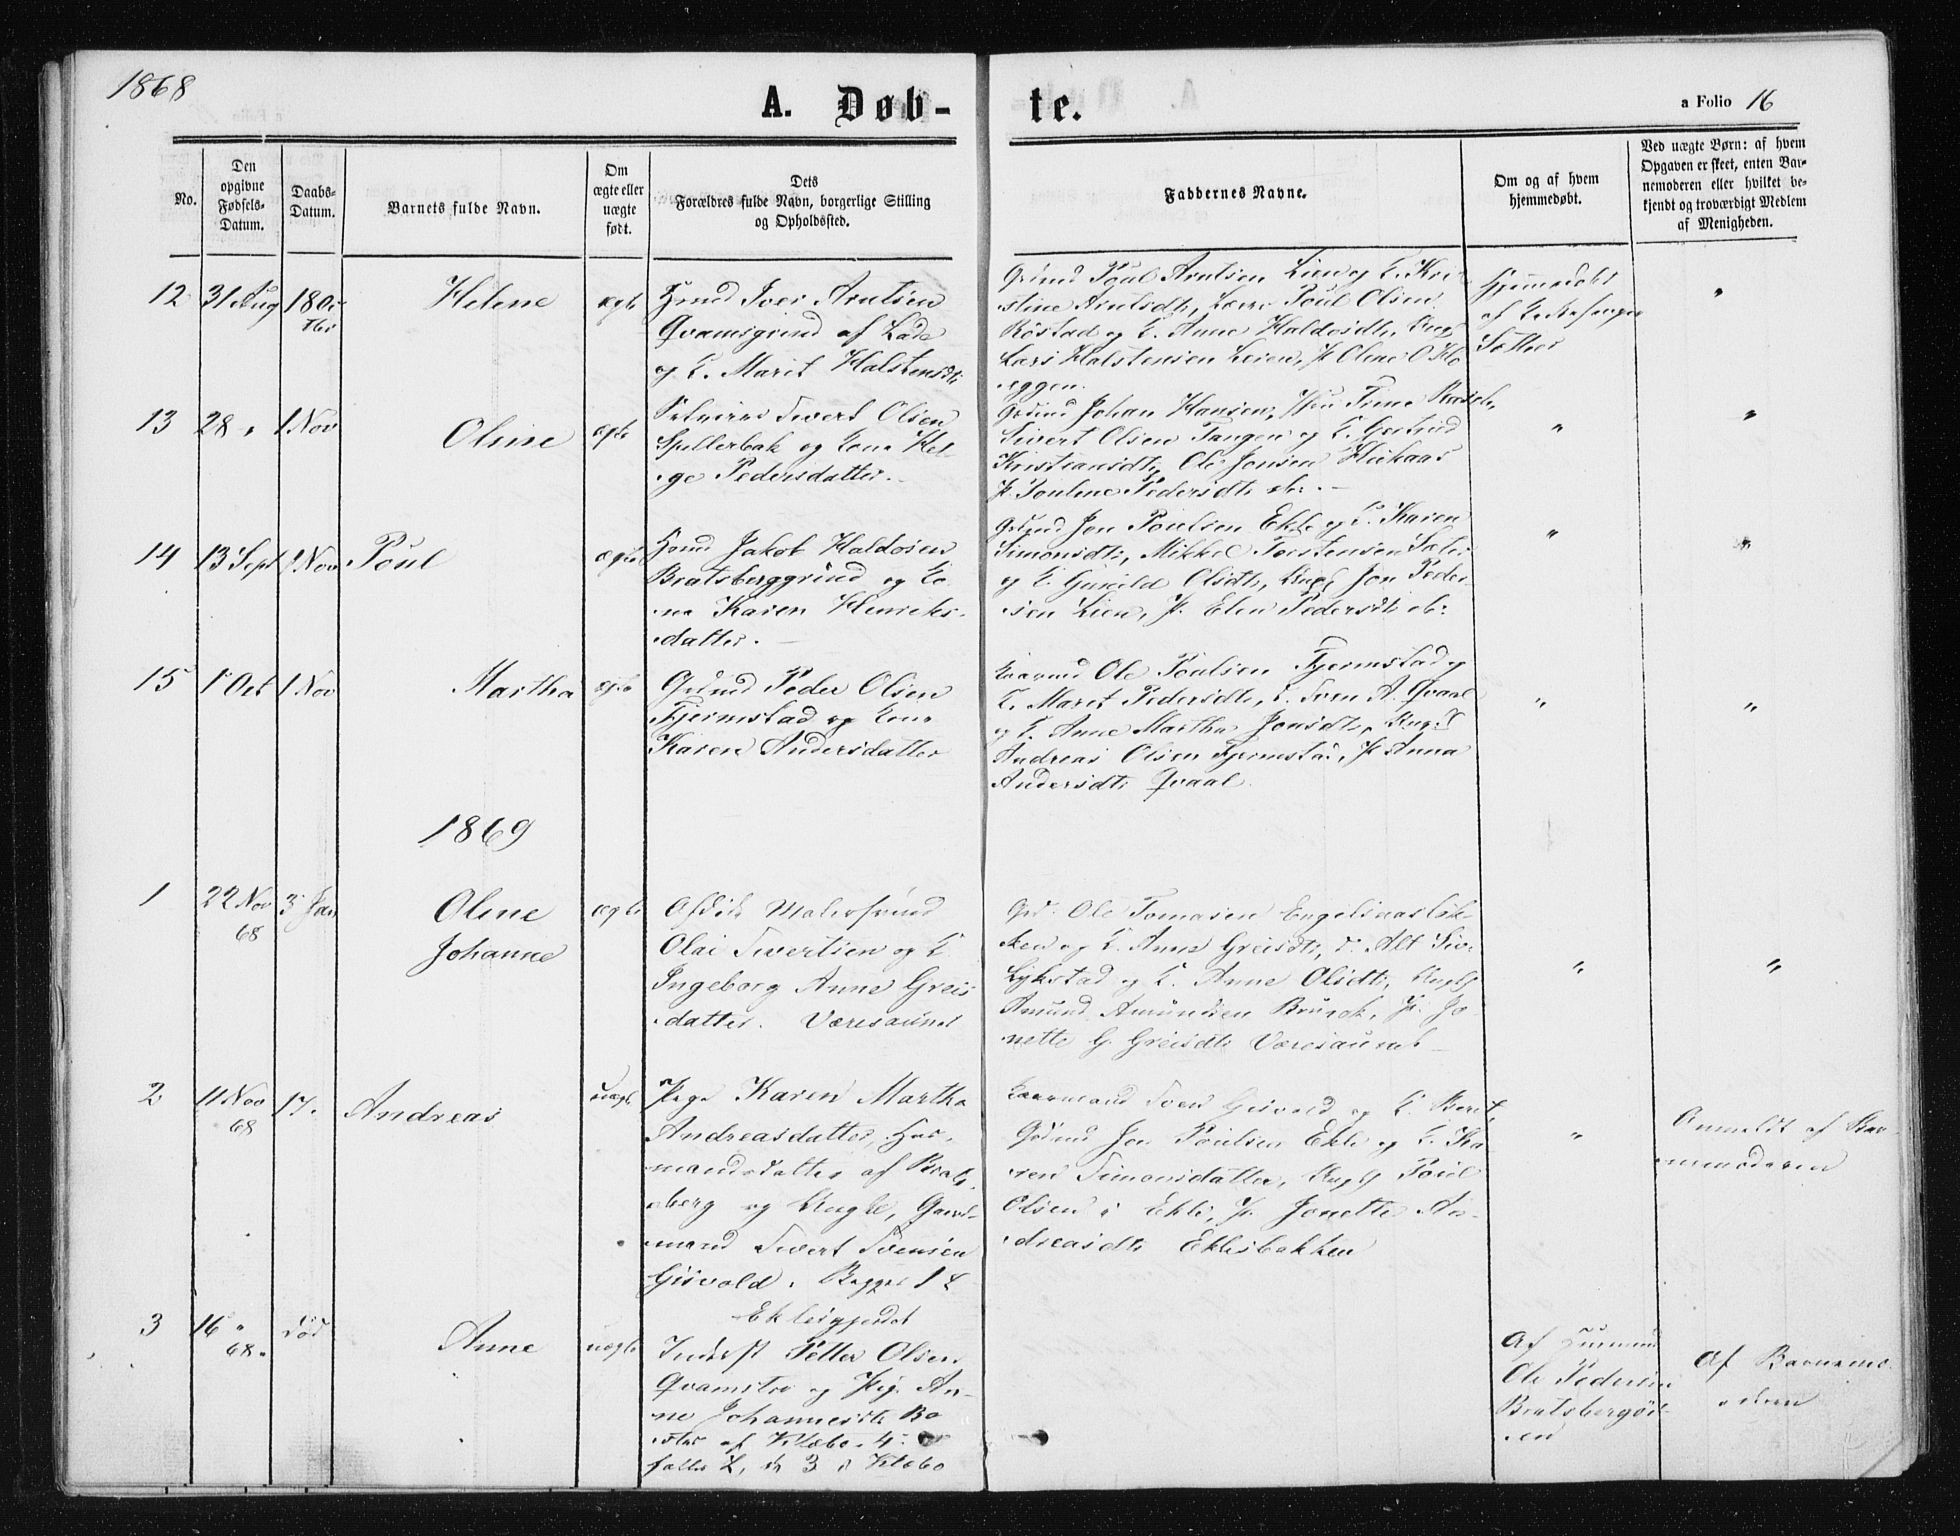 1868
A. Døb-
te.
a Folio 16
No.
Den
opgivne
Fødsels-
Datum.
Daabs-
Datum.
Barnets fulde Navn.
Om
ægte eller
uægte
født.
Dets
Forældres fulde Navn, borgerlige Stilling
og Opholdssted.
Faddernes Navne.
Om og af hvem
hjemmedøbt.
Ved uægte Børn: af hvem
Opgaven er skeet, enten Bar-
nemoderen eller hvilket be-
kjendt og troværdigt Medlem
af Menigheden.
12
31 Aug
18 Oc
tbr
Helene
ægte
Iver Arntsen
Qvamsgrind af Lade
og K. Marit Halstensdtr
Poul Arntsen Lien og K. Kri
stine Arntsdtr, Poul Olsen
Røstad og K. Anne Haldosdtr, Ungk
Lars Halstensen Leren, P. Oline O. Klo
eggen.
Hjemmedøbt
af
Sæther
"
13
28 "
1 Nov
Oline
ægte
Sivert Olsen
Spillerbak og Kone Hel
ge Pedersdatter.
Grdmd Johan Hansen,
Sivert Olsen Tangen og K. Gjertrud
Kristiansdtr, Ole Jonsen
P. Pauline Pedersdtr
"
"
14
13 Sept
1 Nov
Poul
ægte
Jakob Haldosen
Bratsberggrind og Ko
ne Karen Henriks-
datter.
Grdmd Jon Poulsen Ekle og K. Karen
Simonsdtr, Mikkel Torstensen Sæter
og K. Gunild Olsdtr, Ungk Jon Peder
sen Lien, P. Elen Pedersdtr
"
"
15
1 Oct
1 Nov
Martha
ægte
Grdmd Peder Olsen
Fjermstad og Kone
Karen Andersdatter
Ole Poulsen Fjermstad og
K. Marit Pedersdtr, Sven A. Qvaal
og K. Anne Martha Jonsdtr, Ungk
Andreas Olsen Fjermstad, P. Anna
Andersdtr Qvaal.
"
"
1869
1
22 Nov
68
3 Jan
Oline
Johanne
ægte
Olai Sivertsen og K
Ingeborg Anne Greis
datter. Væresaunet
Ole Tomasen Engelsaasløk-
ken og K. Anne Greisdtr,
Lykstad og K. Anne Olsdtr, Ungk
Amund Amundsen P. Jo
nette G. Greisdtr Væresaunet
"
"
2
11 Nov
68
17.
Andreas
uægte
Pige Karen Martha
Andreasdatter, Hus-
mandsdatter af Brats
berg og Ungkl, Gaard-
mand Sivert Svensen
Gisvold. Begges 1 L
Eklesgjerdet
Sven Gisvold og K. Berit,
Grdmd Jon Poulsen Ekle og K. Ka
ren Simonsdatter, Ungk Poul
Olsen i Ekle, P. Jonette An-
dreasdtr Eklesbakken
"
Anmeldt af Bar
nemoderen
3
16 "
68.
død
Anne
uægte
Inderst Petter Olsen
Qvamstrø og Pige An-
ne Johannesdtr
af Klæbo. 4.
3 i Klæbo
Af Husmand
Ole Pedersen
Bratsberg
en
Af Barnemo
deren